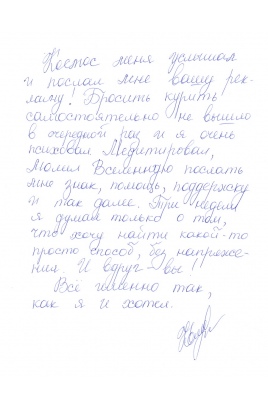 Космос меня услышал
и послал мне вашу рек-
ламу! Бросить курить
самостоятельно не вышло
в очередной раз и я очень
психовал. Медитировал,
молил Вселенную послать
мне знак, помощь, поддержку
и так далее. Три недели
я думал только о том,
что хочу найти какой-то
просто способ, без напряже-
ния. И вдруг – вы!
Всё именно так,
как я и хотел.